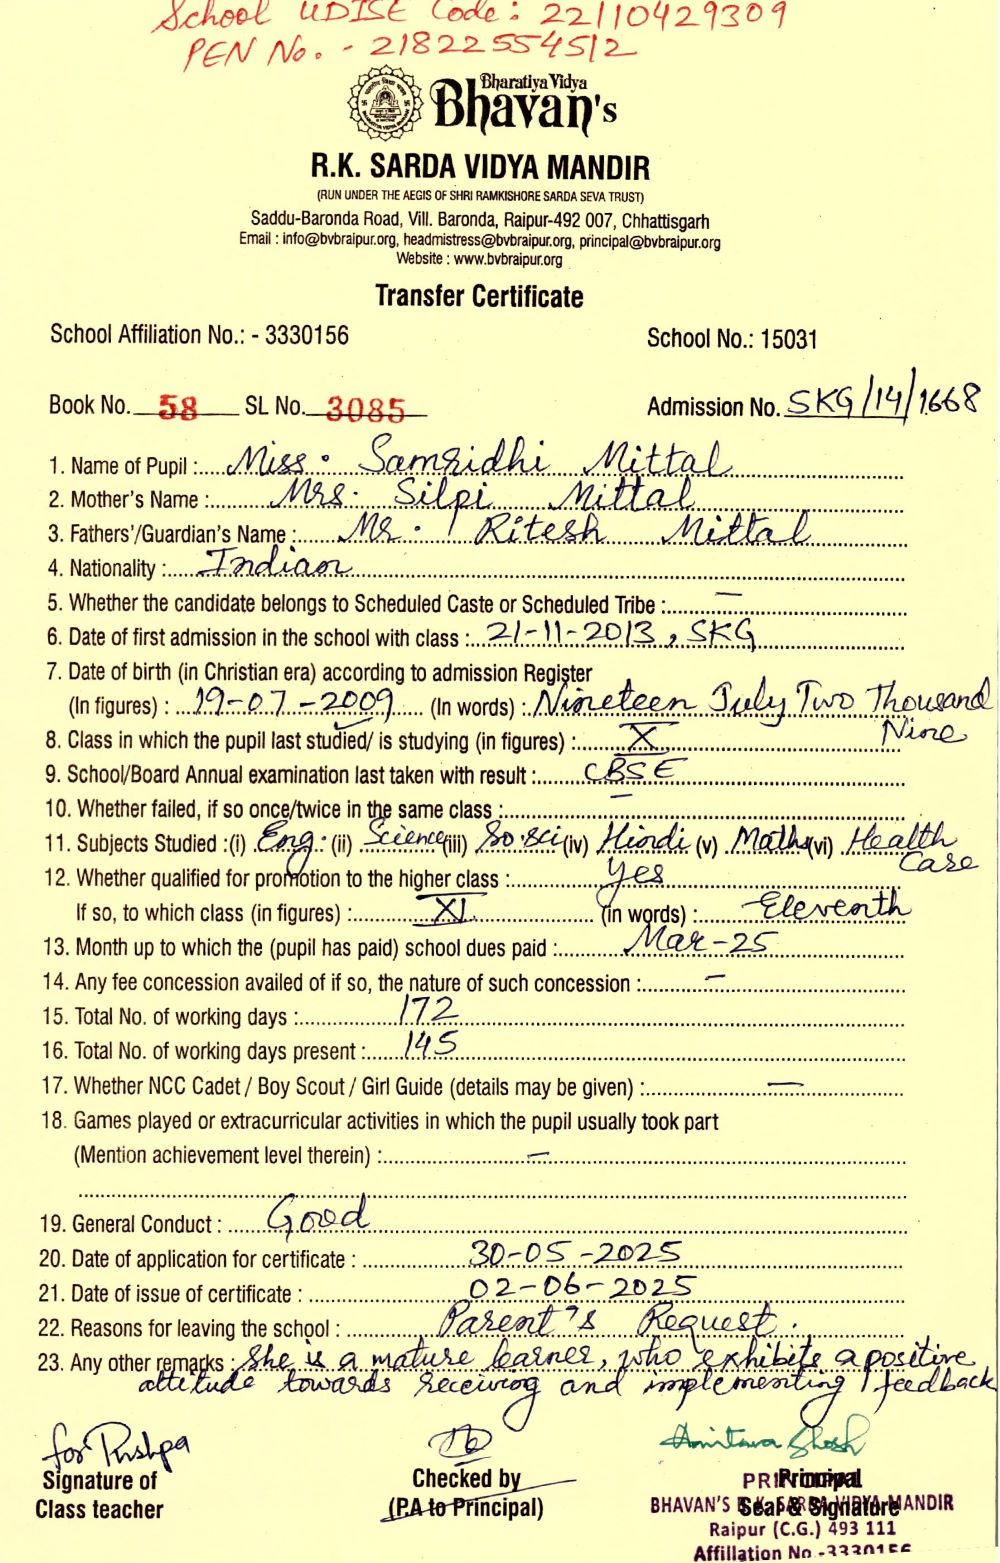 School UDISE Code: 22110429309
PEN No. - 21822554512
Bharatiya Vidya
Bhavan's
R.K. SARDA VIDYA MANDIR
(RUN UNDER THE AEGIS OF SHRI RAMKISHORE SARDA SEVA TRUST)
Saddu-Baronda Road, Vill. Baronda, Raipur-492 007, Chhattisgarh
Email : info@bvbraipur.org, headmistress@bvbraipur.org, principal@bvbraipur.org
Website : www.bvbraipur.org
Transfer Certificate
School Affiliation No.: - 3330156 School No.: 15031
Book No. 58 SL No. 3085 Admission No. SKG/14/1668
1. Name of Pupil : Miss. Samridhi Mittal
2. Mother's Name : Mrs. Silpi Mittal
3. Fathers'/Guardian's Name : Mr. Ritesh Mittal
4. Nationality : Indian
5. Whether the candidate belongs to Scheduled Caste or Scheduled Tribe : —
6. Date of first admission in the school with class : 21-11-2013, SKG
7. Date of birth (in Christian era) according to admission Register
(In figures) : 19-07-2009 (In words) : Nineteen July Two Thousand
Nine
8. Class in which the pupil last studied/ is studying (in figures) : X
9. School/Board Annual examination last taken with result : CBSE
10. Whether failed, if so once/twice in the same class : —
11. Subjects Studied :(i) Eng. (ii) Science (iii) So.sci (iv) Hindi (v) Maths (vi) Health
Care
12. Whether qualified for promotion to the higher class : Yes
If so, to which class (in figures) : XI (in words) : Eleventh
13. Month up to which the (pupil has paid) school dues paid : Mar-25
14. Any fee concession availed of if so, the nature of such concession : —
15. Total No. of working days : 172
16. Total No. of working days present : 145
17. Whether NCC Cadet / Boy Scout / Girl Guide (details may be given) : —
18. Games played or extracurricular activities in which the pupil usually took part
(Mention achievement level therein) : —
19. General Conduct : Good
20. Date of application for certificate : 30-05-2025
21. Date of issue of certificate : 02-06-2025
22. Reasons for leaving the school : Parent's Request.
23. Any other remarks : She is a mature learner, who exhibits a positive
attitude towards receiving and implementing feedback
for Pushpa Amitava Ghosh
Signature of Checked by Principal
Class teacher (P.A to Principal) Seal & Signature
PRINCIPAL
BHAVAN'S R.K. SARDA VIDYA MANDIR
Raipur (C.G.) 493 111
Affiliation No.-3330156